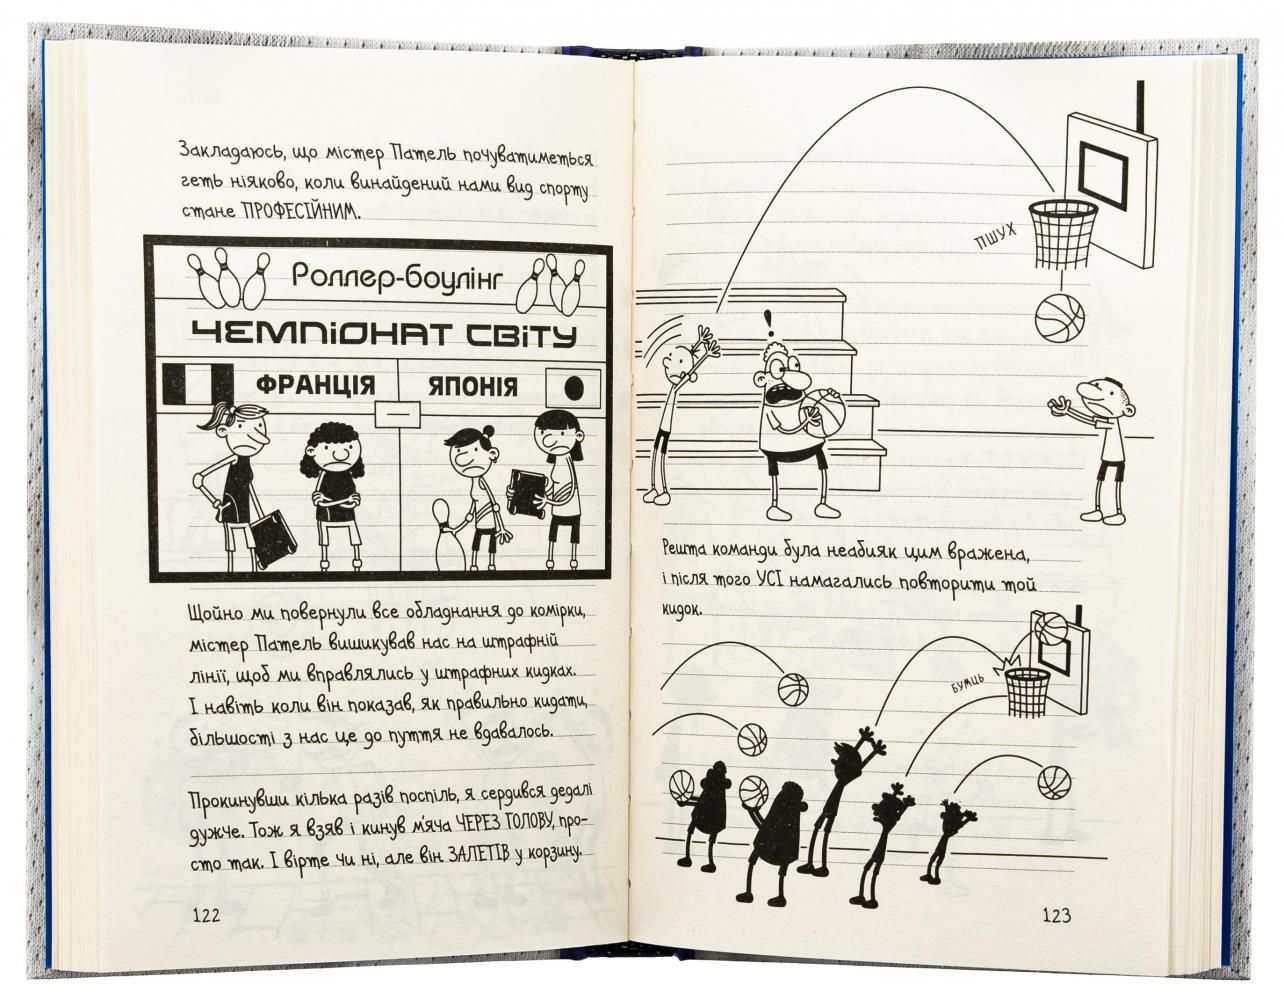 Закладаюсь, що містер Патель почуватиметься
геть ніяково, коли винайдений нами вид спорту
стане ПРОФЕСІЙНИМ.
Роллер-боулінг
ЧЕМПІОНАТ СВІТУ
ФРАНЦІЯ ЯПОНІЯ
Щойно ми повернули все обладнання до комірки,
містер Патель вишикував нас на штрафній
лінії, щоб ми вправлялись у штрафних кидках.
І навіть коли він показав, як правильно кидати,
більшості з нас це до пуття не вдавалось.
Прокинувши кілька разів поспіль, я сердився дедалі
дужче. Тож я взяв і кинув м'яча ЧЕРЕЗ ГОЛОВУ, про-
сто так. І вірте чи ні, але він ЗАЛЕТІВ у корзину.
122
ПШУХ
!
Решта команди була неабияк цим вражена,
і після того УСІ намагались повторити той
кидок.
БУМЦЬ
123